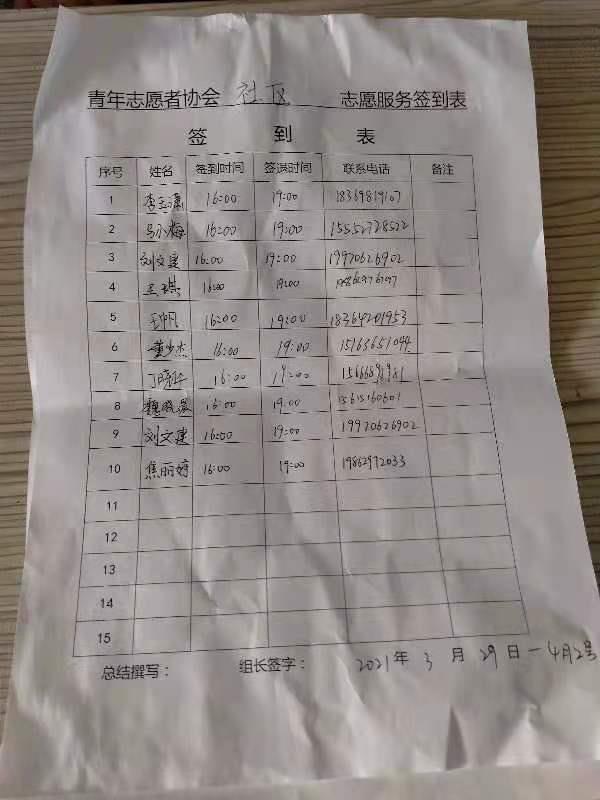 青年志愿者协会 社区 志愿服务签到表
签 到 表
序号 姓名 签到时间 签退时间 联系电话 备注
1 李玉潇 16:00 19:00 18369819107
2 马小梅 16:00 19:00 15552728522
3 刘文建 16:00 19:00 19970626902
4 16:00 19:00
5 16:00 19:00 18364201953
6 董少杰 16:00 19:00 15163651044
7 丁晓华 16:00 19:00
8 16:00 19:00
9 刘文建 16:00 19:00 19970626902
10 焦丽婷 16:00 19:00 19862972033
11
12
13
14
15
总结撰写： 组长签字： 2021年 3 月 29日-4月2号